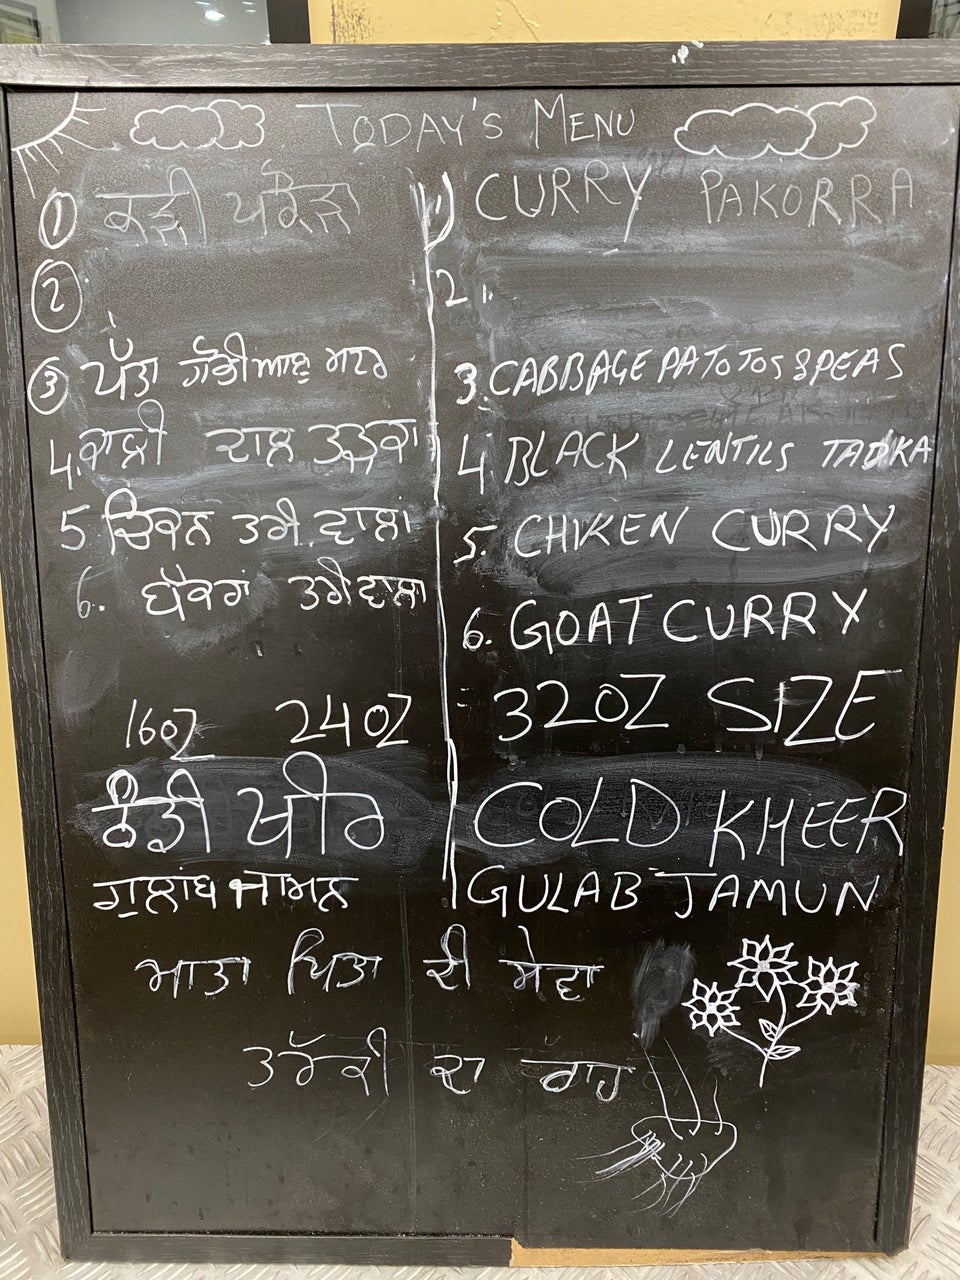 TODAY'S MENU
1 ਕੜੀ ਪਕੌੜਾ 1) CURRY PAKORRA
2 2.
3 ਪੱਤਾ ਗੋਭੀ ਆਲੂ ਮਟਰ 3. CABBAGE PATOTOS & PEAS
4. ਕਾਲੀ ਦਾਲ ਤੜਕਾ 4 BLACK LENTILS TADKA
5 ਚਿਕਨ ਤਰੀ ਵਾਲਾ 5. CHIKEN CURRY
6. ਬੱਕਰਾ ਤਰੀ ਵਾਲਾ 6. GOAT CURRY
16OZ 24OZ 32OZ SIZE
ਠੰਡੀ ਖੀਰ COLD KHEER
ਗੁਲਾਬ ਜਾਮਨ GULAB JAMUN
ਮਾਤਾ ਪਿਤਾ ਦੀ ਸੇਵਾ
ਤਰੱਕੀ ਦਾ ਰਾਹ